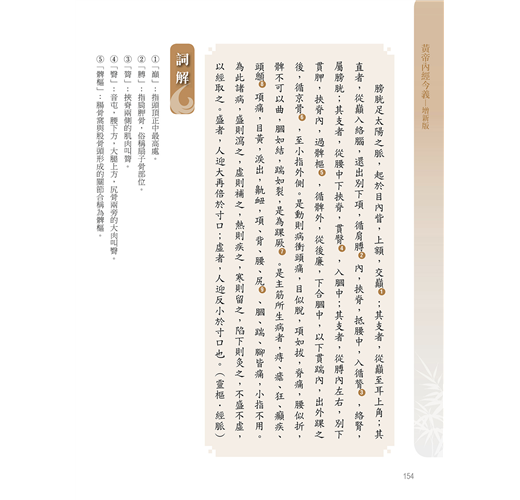 黃帝內經今義—增新版
膀胱足太陽之脈，起於目內眥，上額，交巔①；其支者，從巔至耳上角；其
直者，從巔入絡腦，還出別下項，循肩髆②內，挾脊，抵腰中，入循膂③，絡腎，
屬膀胱；其支者，從腰中下挾脊，貫臀④，入膕中；其支者，從髆內左右，別下
貫胛，挾脊內，過髀樞⑤，循髀外，從後廉，下合膕中，以下貫踹內，出外踝之
後，循京骨⑥，至小指外側。是動則病衝頭痛，目似脫，項如拔，脊痛，腰似折，
髀不可以曲，膕如結，踹如裂，是為踝厥⑦。是主筋所生病者，痔、瘧、狂、癲疾、
頭顖⑧項痛，目黃，淚出，鼽衄，項、背、腰、尻⑨、膕、踹、腳皆痛，小指不用。
為此諸病，盛則瀉之，虛則補之，熱則疾之，寒則留之，陷下則灸之，不盛不虛，
以經取之。盛者，人迎大再倍於寸口；虛者，人迎反小於寸口也。（靈樞．經脈）
詞解
①「巔」：指頭頂正中最高處。
②「髆」：指肩胛骨，俗稱扇子骨部位。
③「膂」：挾脊兩側的肌肉叫膂。
④「臀」：音屯，腰下方，大腿上方，尻骨兩旁的大肉叫臀。
⑤「髀樞」：腸骨窩與股骨頭形成的關節合稱為髀樞。
154